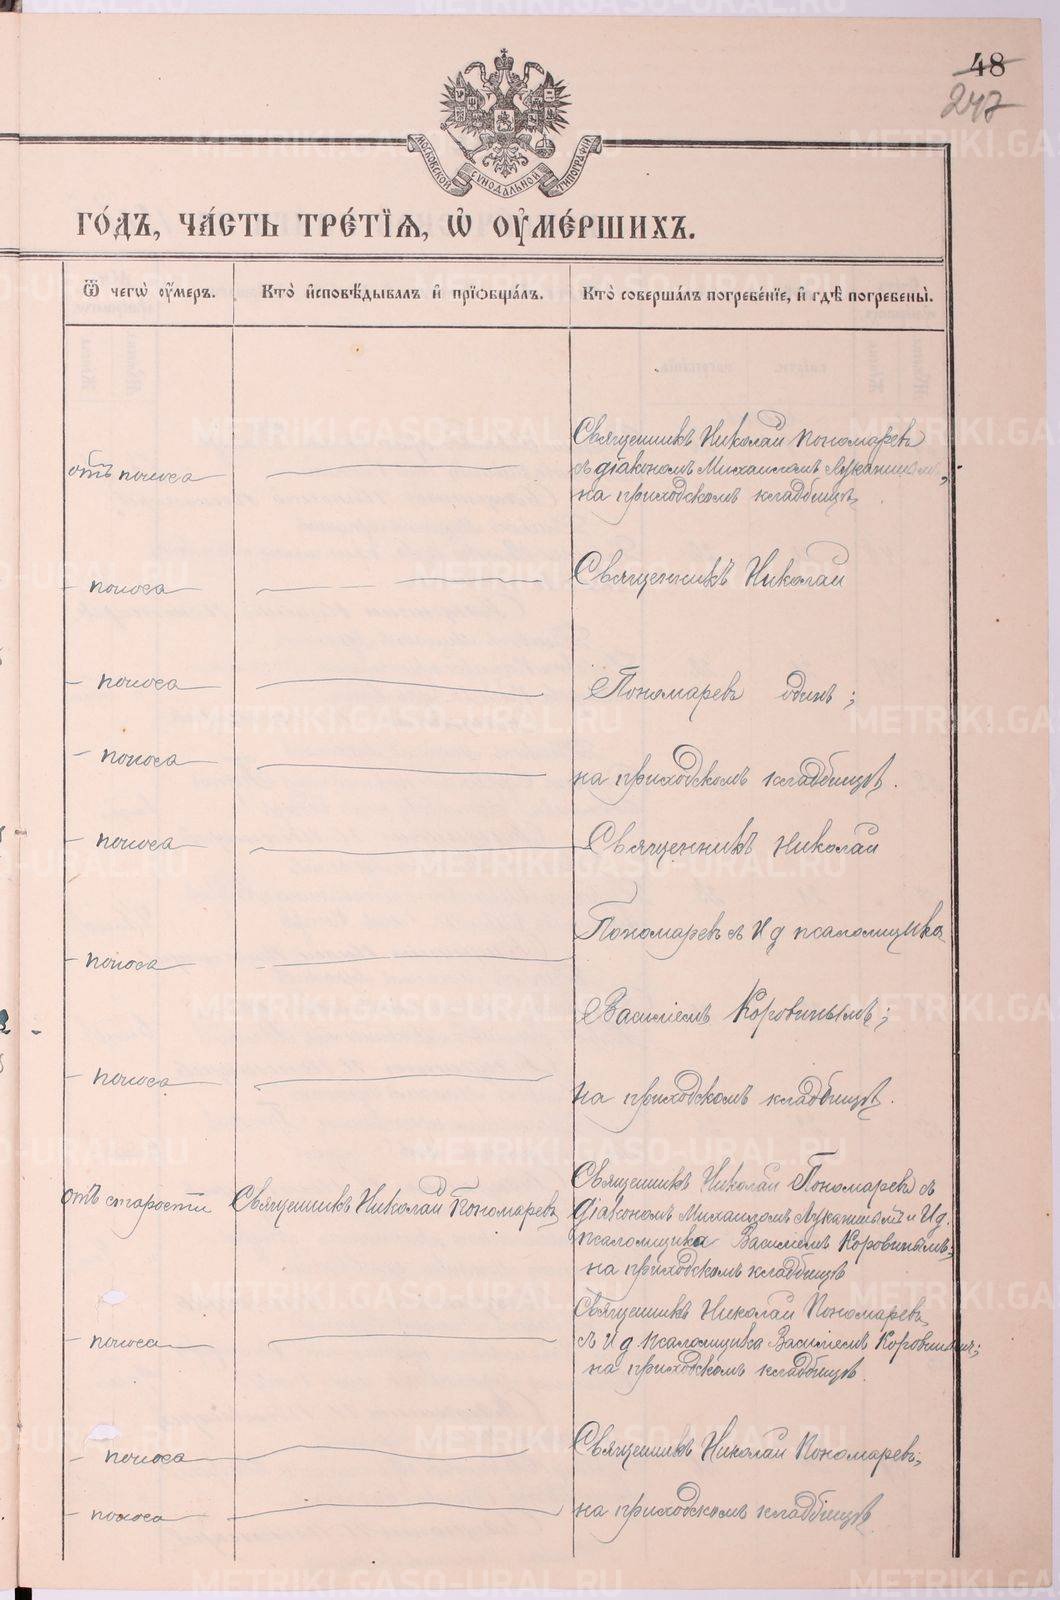 48
247
МОСКОВСКОЙ СѴНОДАЛЬНОЙ ТИПОГРАФІИ
ГО́ДЪ, ЧА́СТЬ ТРЕ́ТІѦ, Ѡ҆ ОУ҆МЕ́РШИХЪ.
Ѿ чегѡ̀ ᲂу҆́меръ.
Кто̀ и҆сповѣ́дывалъ и҆ прїѻбща́лъ.
Кто̀ соверша́лъ погребе́нїе, и҆ гдѣ̀ погребены̀.
Священникъ Николай Пономаревъ
отъ поноса
съ діакономъ Михаиломъ Лукинымъ,
на приходскомъ кладбищѣ
- поноса
Священникъ Николай
- поноса
Пономаревъ одинъ;
- поноса
на приходскомъ кладбищѣ.
- поноса
Священникъ Николай
Пономаревъ съ И д псаломщика
- поноса
Василіемъ Коровинымъ;
- поноса
на приходскомъ кладбищѣ.
Священникъ Николай Пономаревъ съ
отъ старости
Священникъ Николай Пономаревъ
діакономъ Михаиломъ и И д.
псаломщика Василіемъ Коровинымъ;
на приходскомъ кладбищѣ
Священникъ Николай Пономаревъ
- поноса
съ И д псаломщика Василіемъ Коровинымъ;
на приходскомъ кладбищѣ.
Священникъ Николай Пономаревъ;
- поноса
- поноса
на приходскомъ кладбищѣ
METRIKI.GASO-URAL.RU